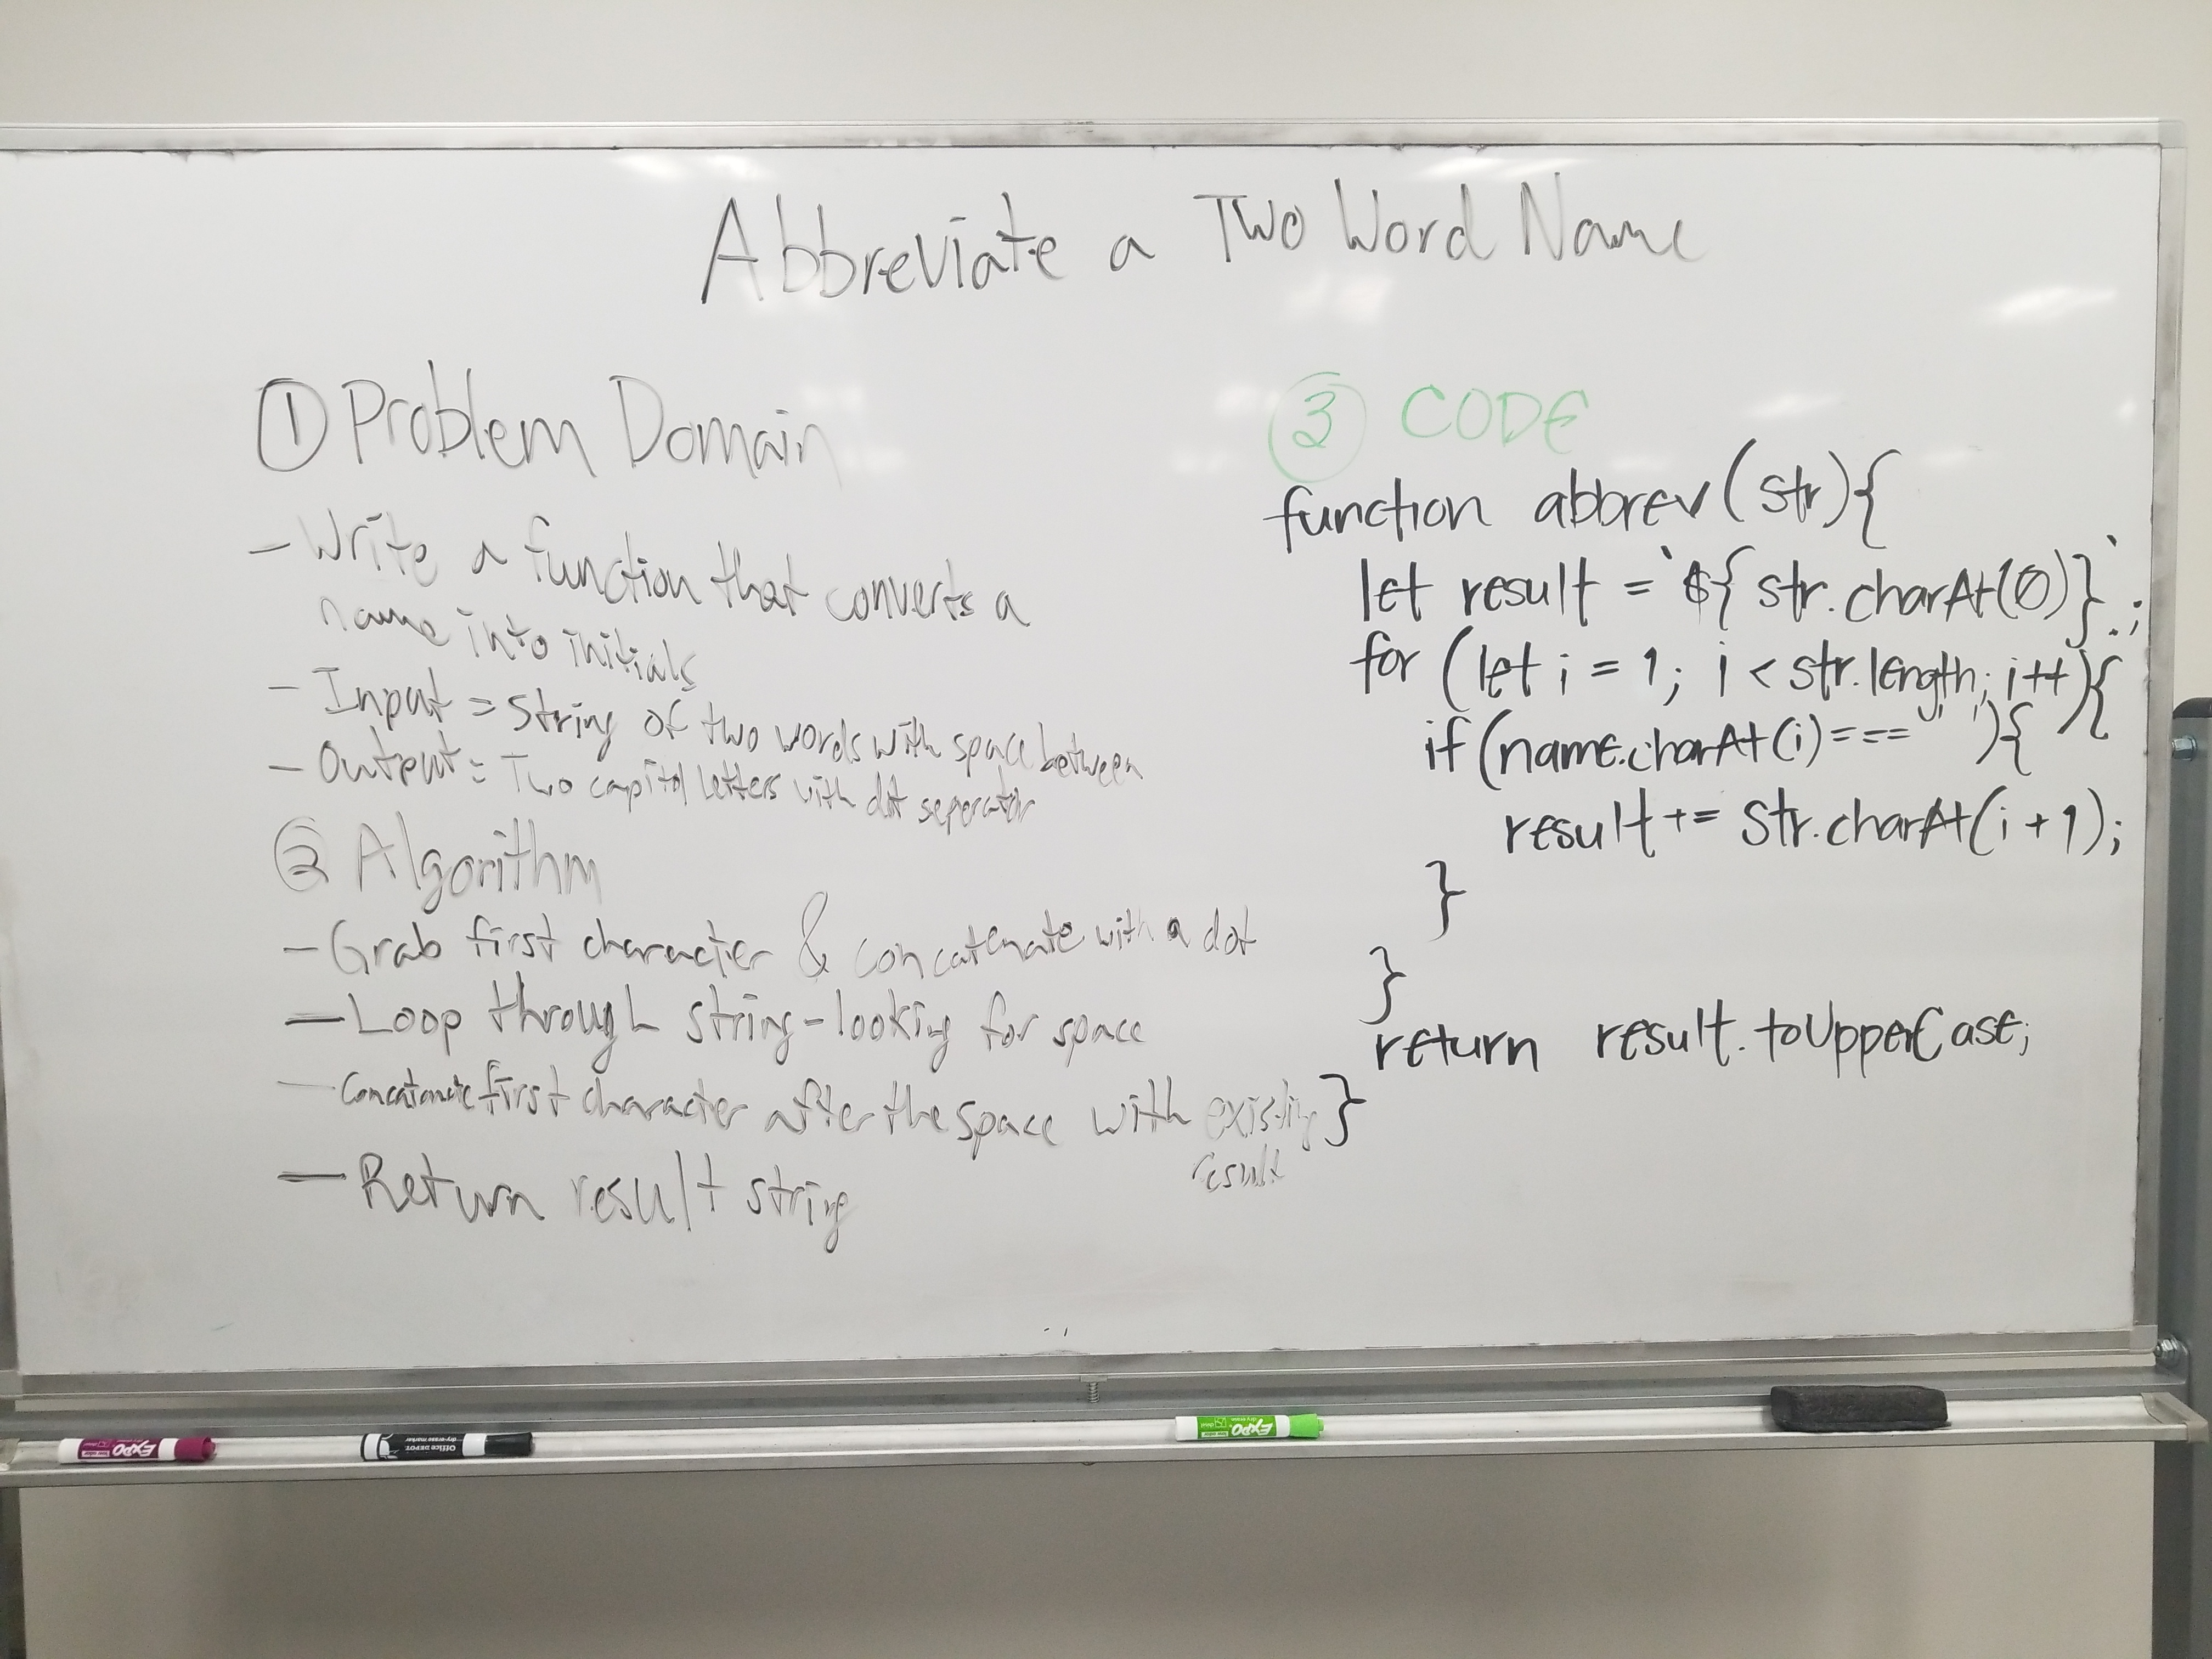 Abbreviate a Two Word Name
① Problem Domain
- Write a function that converts a
name into initials
- Input = String of two words with space between
- Output = Two capitol letters with dot seperator
② Algorithm
- Grab first character & concatenate with a dot
- Loop through string - looking for space
- Concatonate first character after the space with existing
result
- Return result string
③ CODE
function abbrev(str){
let result = `${str.charAt(0)}.`;
for (let i = 1; i < str.length; i++){
if (name.charAt(i) === ' '){
result += str.charAt(i + 1);
}
}
return result.toUpperCase;
}
EXPO
Office DEPOT
dry-erase marker
EXPO